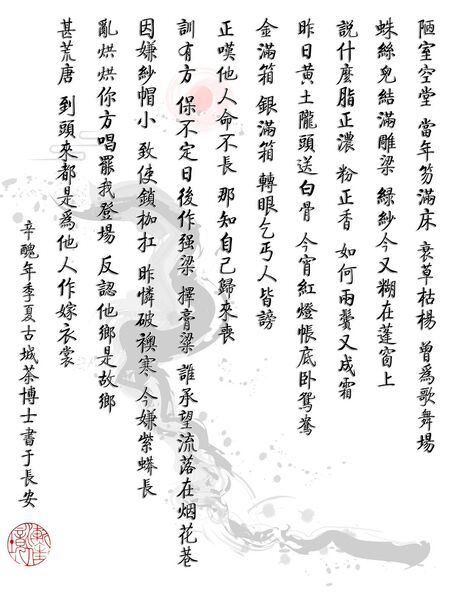 陋室空堂 當年笏滿床 衰草枯楊 曾爲歌舞場
蛛絲兒結滿雕梁 綠紗今又糊在蓬窗上
説什麼脂正濃 粉正香 如何兩鬢又成霜
昨日黃土隴頭送白骨 今宵紅燈帳底卧鴛鴦
金滿箱 銀滿箱 轉眼乞丐人皆謗
正嘆他人命不長 那知自己歸來喪
訓有方 保不定日後作强梁 擇膏粱 誰承望流落在烟花巷
因嫌紗帽小 致使鎖枷扛 昨憐破襖寒 今嫌紫蟒長
亂烘烘你方唱罷我登場 反認他鄉是故鄉
甚荒唐 到頭來都是爲他人作嫁衣裳
辛醜年季夏古城茶博士書于長安